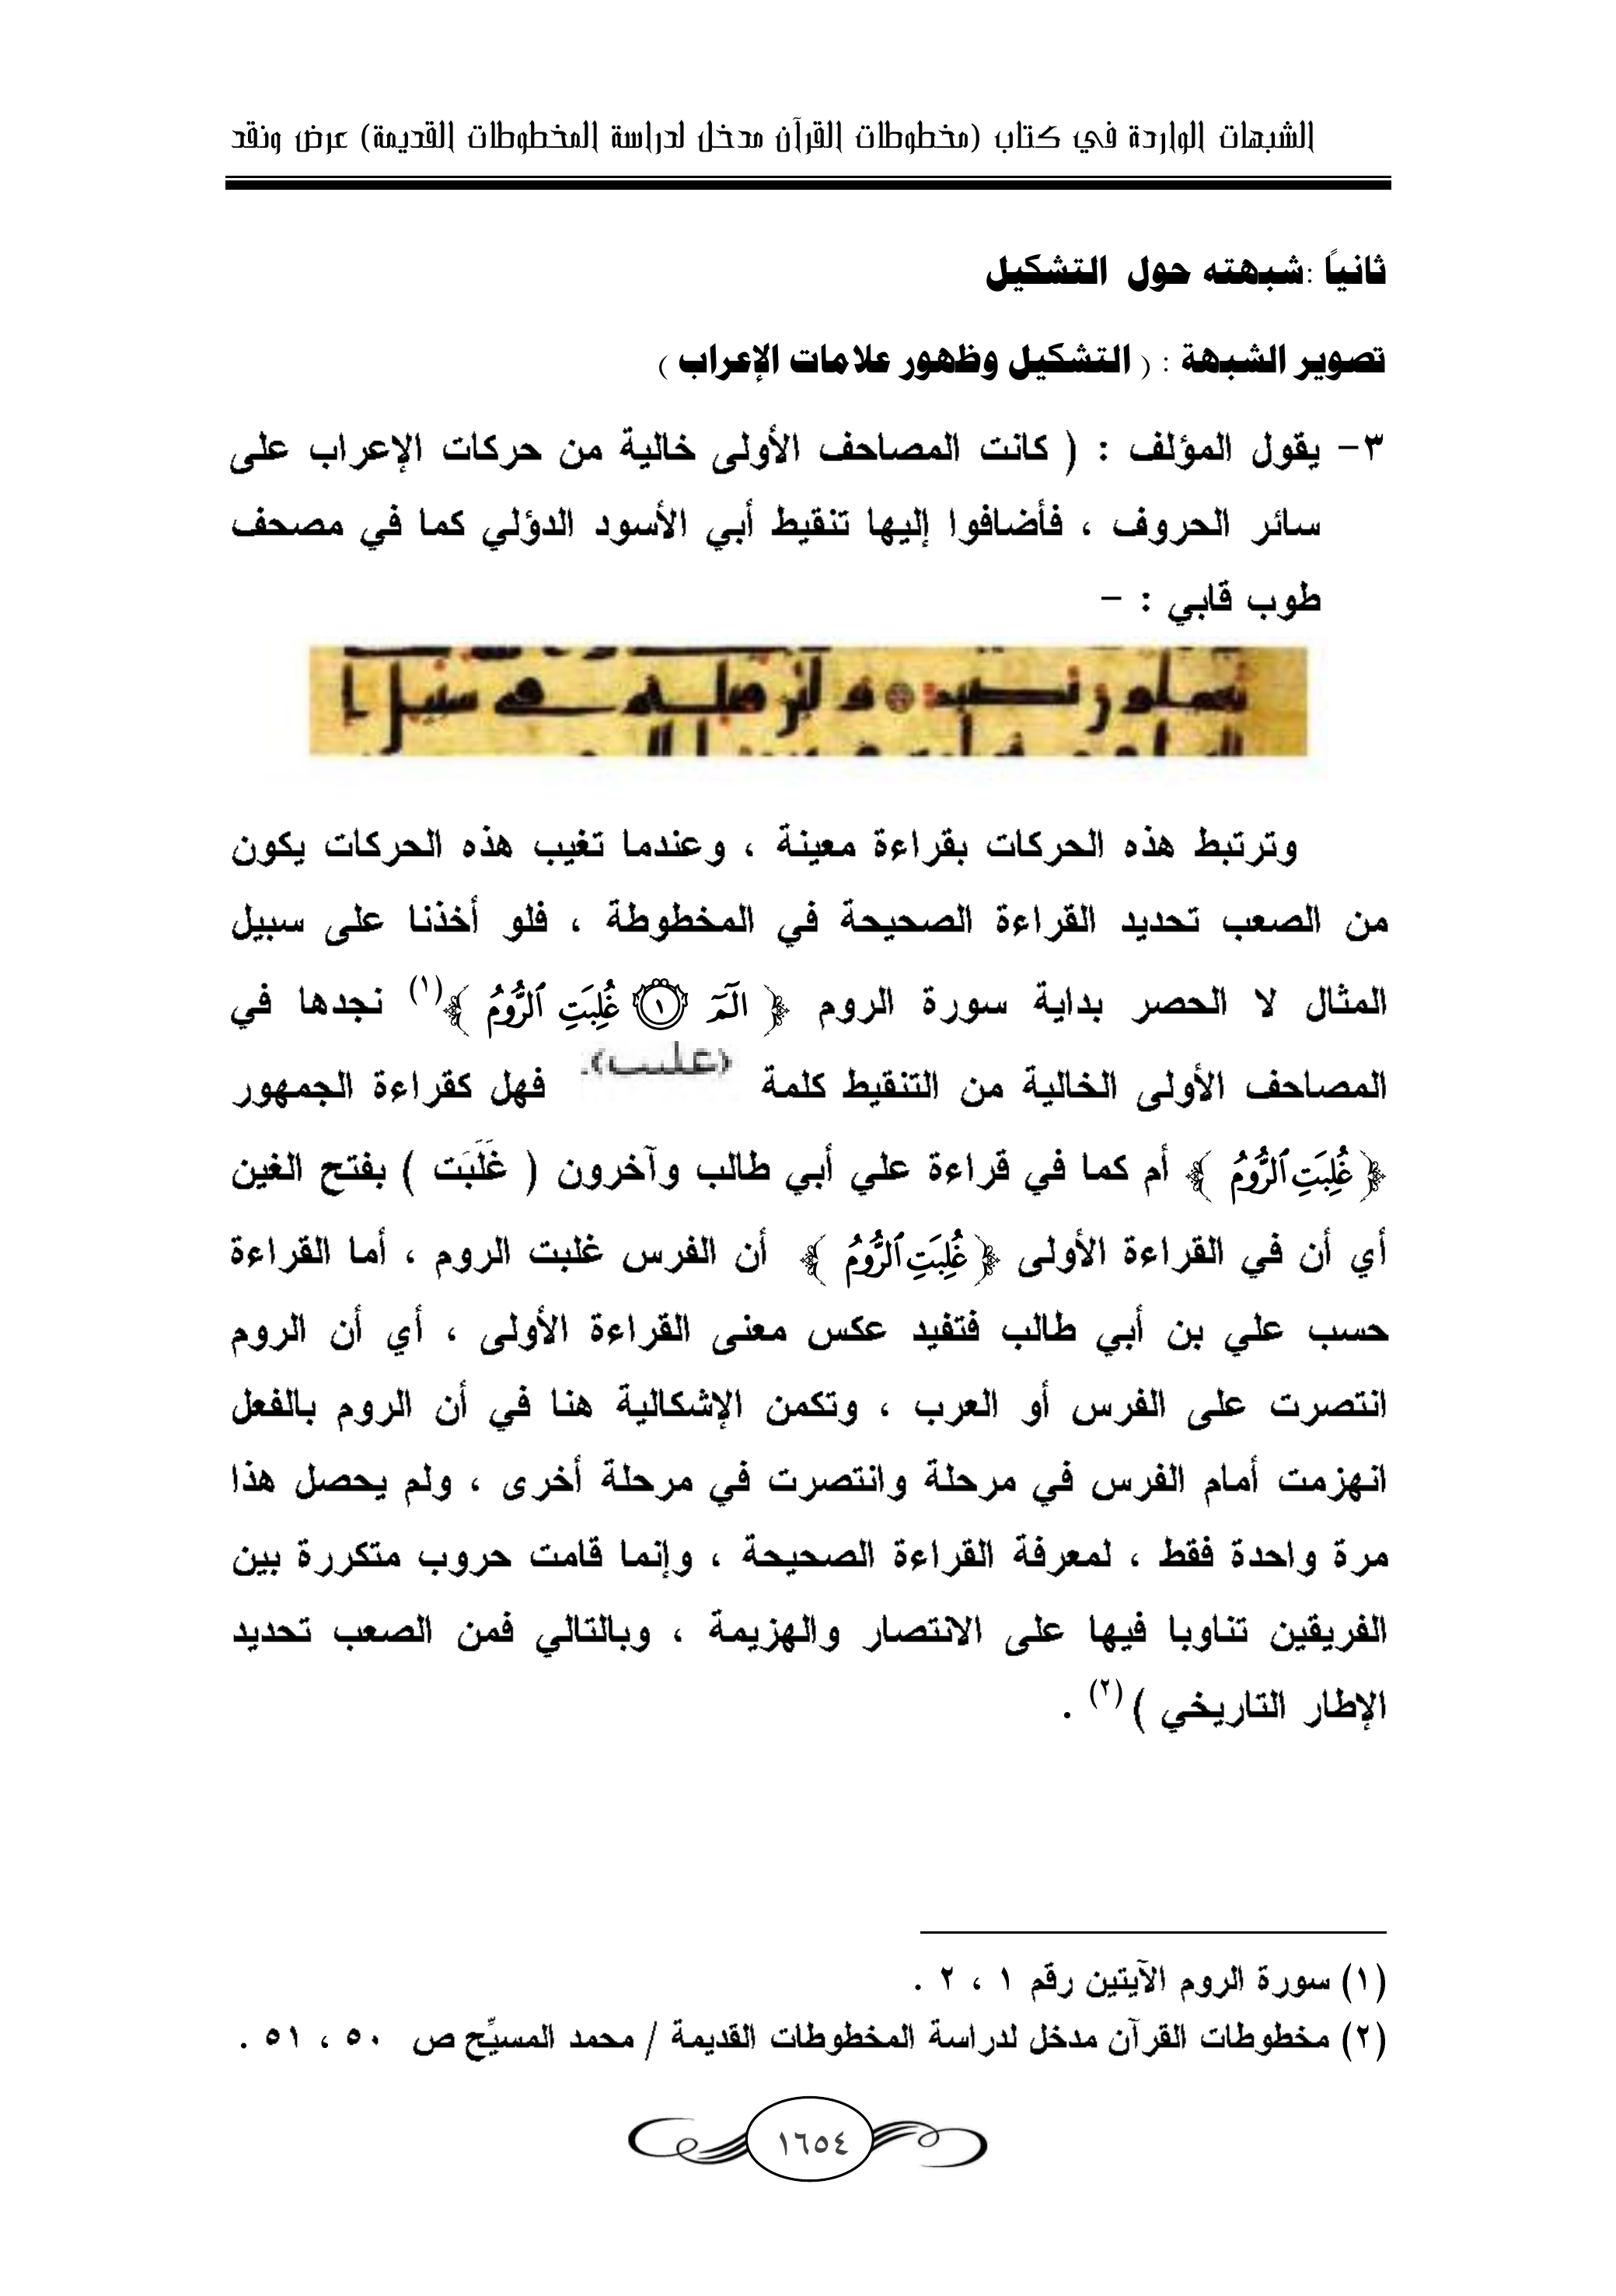 الشبهات الواردة في كتاب (مخطوطات القرآن مدخل لدراسة المخطوطات القديمة) عرض ونقد
ثانياً :شبهته حول التشكيل
تصوير الشبهة : ( التشكيل وظهور علامات الإعراب )
٣- يقول المؤلف : ( كانت المصاحف الأولى خالية من حركات الإعراب على
سائر الحروف ، فأضافوا إليها تنقيط أبي الأسود الدؤلي كما في مصحف
طوب قابي : -
وترتبط هذه الحركات بقراءة معينة ، وعندما تغيب هذه الحركات يكون
من الصعب تحديد القراءة الصحيحة في المخطوطة ، فلو أخذنا على سبيل
المثال لا الحصر بداية سورة الروم ﴿ الٓمٓ ١ غُلِبَتِ ٱلرُّومُ ﴾(١) نجدها في
المصاحف الأولى الخالية من التنقيط كلمة فهل كقراءة الجمهور
﴿ غُلِبَتِ ٱلرُّومُ ﴾ أم كما في قراءة علي أبي طالب وآخرون ( غَلَبَت ) بفتح الغين
أي أن في القراءة الأولى ﴿ غُلِبَتِ ٱلرُّومُ ﴾ أن الفرس غلبت الروم ، أما القراءة
حسب علي بن أبي طالب فتفيد عكس معنى القراءة الأولى ، أي أن الروم
انتصرت على الفرس أو العرب ، وتكمن الإشكالية هنا في أن الروم بالفعل
انهزمت أمام الفرس في مرحلة وانتصرت في مرحلة أخرى ، ولم يحصل هذا
مرة واحدة فقط ، لمعرفة القراءة الصحيحة ، وإنما قامت حروب متكررة بين
الفريقين تناوبا فيها على الانتصار والهزيمة ، وبالتالي فمن الصعب تحديد
الإطار التاريخي )(٢) .
(١) سورة الروم الآيتين رقم ١ ، ٢ .
(٢) مخطوطات القرآن مدخل لدراسة المخطوطات القديمة / محمد المسيِّح ص ٥٠ ، ٥١ .
١٦٥٤